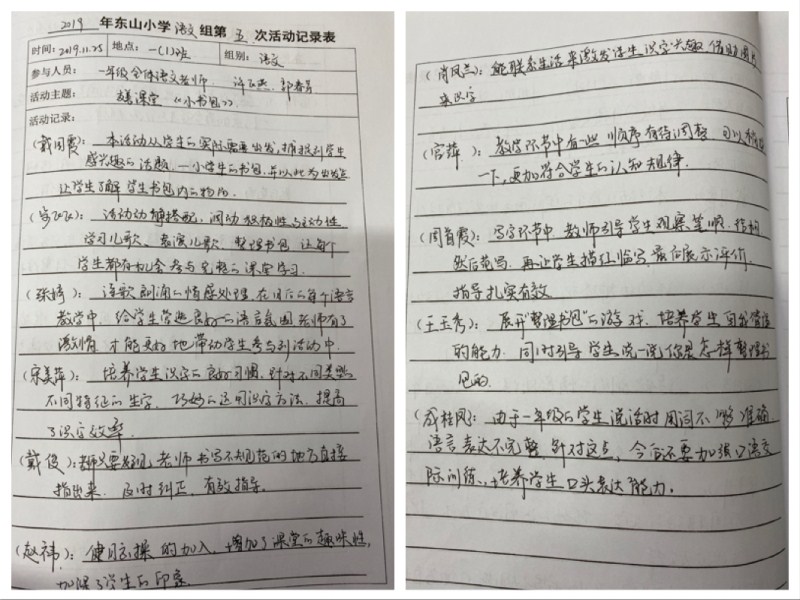 2019 年东山小学语文组第五次活动记录表
时间：2019.11.25 地点：一(1)班 组别：语文
参与人员：一年级全体语文老师、
活动主题：磨课堂《小书包》
活动记录：
(戴国霞)：本活动从学生的实际需要出发，捕捉到学生
感兴趣的话题，一小学生的书包，并以此为出发点
让学生了解学生书包内的物品。
活动动静搭配，调动积极性与主动性
学习儿歌、表演儿歌、整理书包，让每个
学生都有机会参与到整个课堂学习
(张婷)：诗歌朗诵的情感处理，在日后的每个语言
教学中，给学生营造良好的语言氛围，老师有了
激情，才能更好地带动学生参与到活动中
(宋美萍)：培养学生识字的良好习惯，针对不同类型
不同特征的生字，巧妙的运用识字方法，提高
了识字效率
(戴俊)：善于发现，老师书写不规范的地方直接
指出来，及时纠正，有效指导。
(赵祎)：健脑操的加入，增加了课堂的趣味性，
加深了学生的印象
(肖凤兰)：能联系生活来激发学生识字兴趣，借助图片
来识字
(官萍)：教学环节中有一些顺序有待调整，可以
一下，更加符合学生的认知规律.
(周首霞)：写字环节中，教师引导学生观察笔顺、结构
然后范写，再让学生描红临写，最后展示评价，
指导扎实有效
(王玉秀)：展开"整理书包"的游戏，培养学生自我管理
的能力，同时引导学生说一说你是怎样整理书
包的.
(成桂凤)：由于一年级的学生说话时用词不够准确，
语言表达不完整，针对这点，今后还要加强口语交
际训练，培养学生口头表达能力。